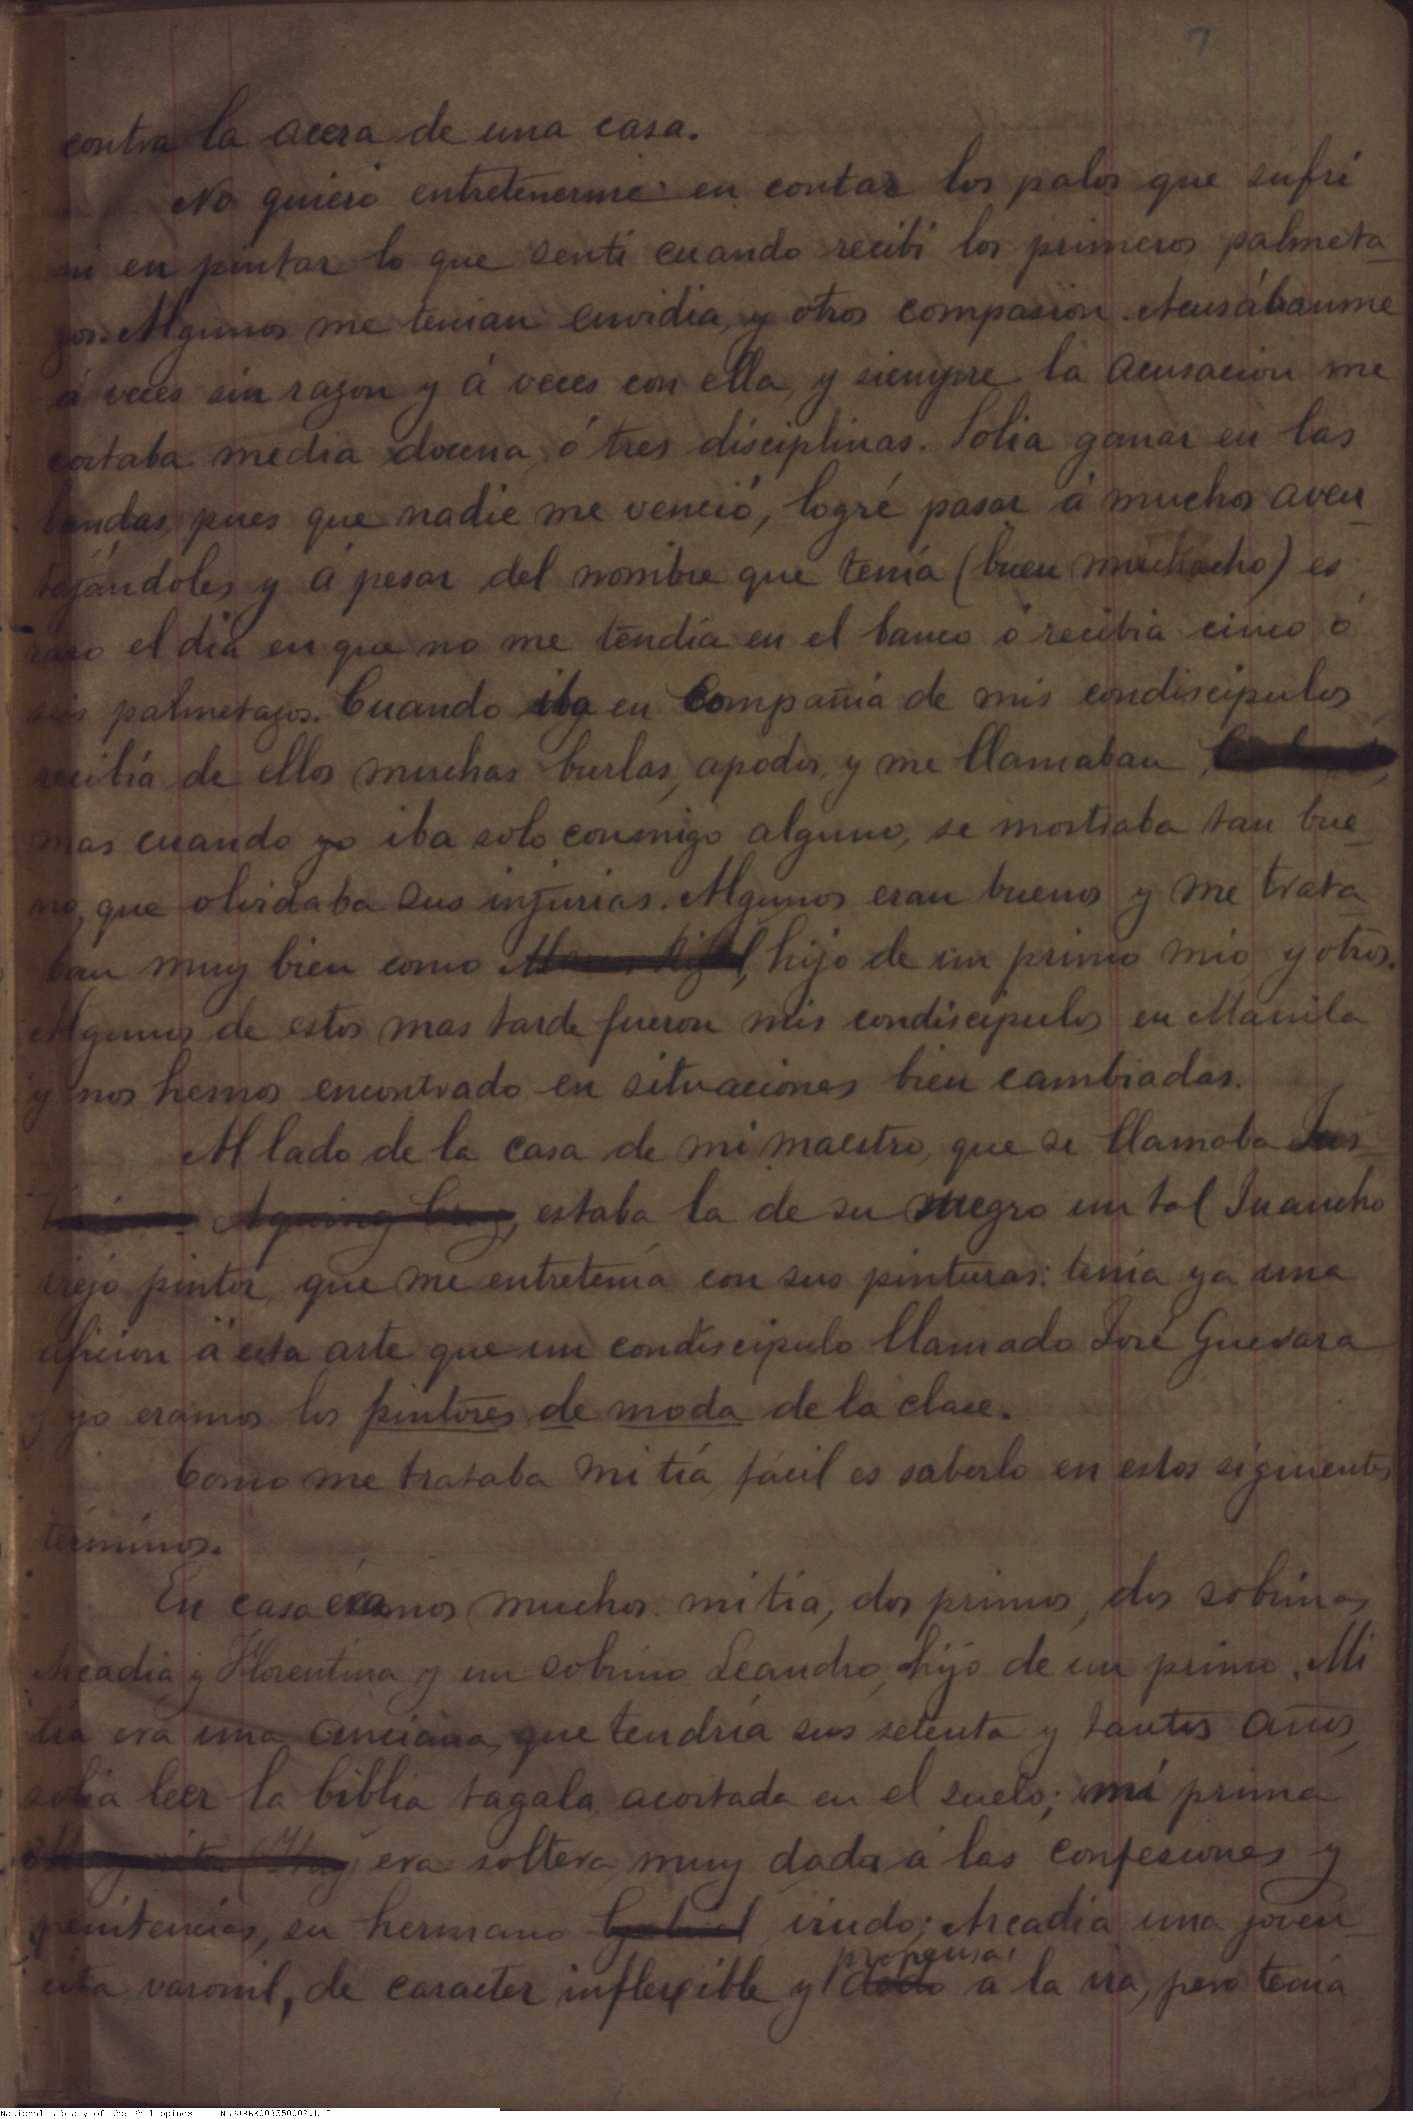 7
contra la acera de una casa.
No quiero entretenerme en contar los palos que sufrí
ni en pintar lo que sentí cuando recibí los primeros palmeta-
zos. Algunos me tenian envidia, y otros compasion. Acusábanme
á veces sin razon y á veces con ella, y siempre la acusacion me
costaba media docena ó tres disciplinas. Solia ganar en las
bandas, pues que nadie me venció, logré pasar á muchos aven-
tajándoles y á pesar del nombre que tenía (buen muchacho) es
raro el dia en que no me tendía en el banco ó recibia cinco ó
seis palmetazos. Cuando iba en Compañía de mis condiscipulos
recibía de ellos muchas burlas, apodos, y me llamaban
mas cuando yo iba solo conmigo alguno, se mostraba tan bue-
no, que olvidaba sus injurias. Algunos eran buenos y me trata-
ban muy bien como hijo de un primo mio y otros.
Algunos de estos mas tarde fueron mis condiscipulos en Manila
y nos hemos encontrado en situaciones bien cambiadas.
Al lado de la casa de mi maestro, que se llamaba Jus-
Aquing Cruz, estaba la de su suegro un tal Juancho
viejo pintor que me entretenía con sus pinturas: tenía ya una
aficion á esta arte que un condiscipulo llamado José Guevara
y yo eramos los pintores de moda de la clase.
Como me trataba mi tía fácil es saberlo en estos siguientes
términos.
En casa éramos muchos: mi tia, dos primos, dos sobrinas
Arcadia y Florentina y un sobrino Leandro, hijo de un primo. Mi
tia era una anciana, que tendría sus setenta y tantos años,
solia leer la biblia tagala acostada en el suelo; mi prima
era soltera, muy dada á las confesiones y
penitencias, su hermano Gabriel viudo; Arcadia una joven-
cita varonil, de caracter inflexible y propensa á la ira, pero tenía
National Library of the Philippines